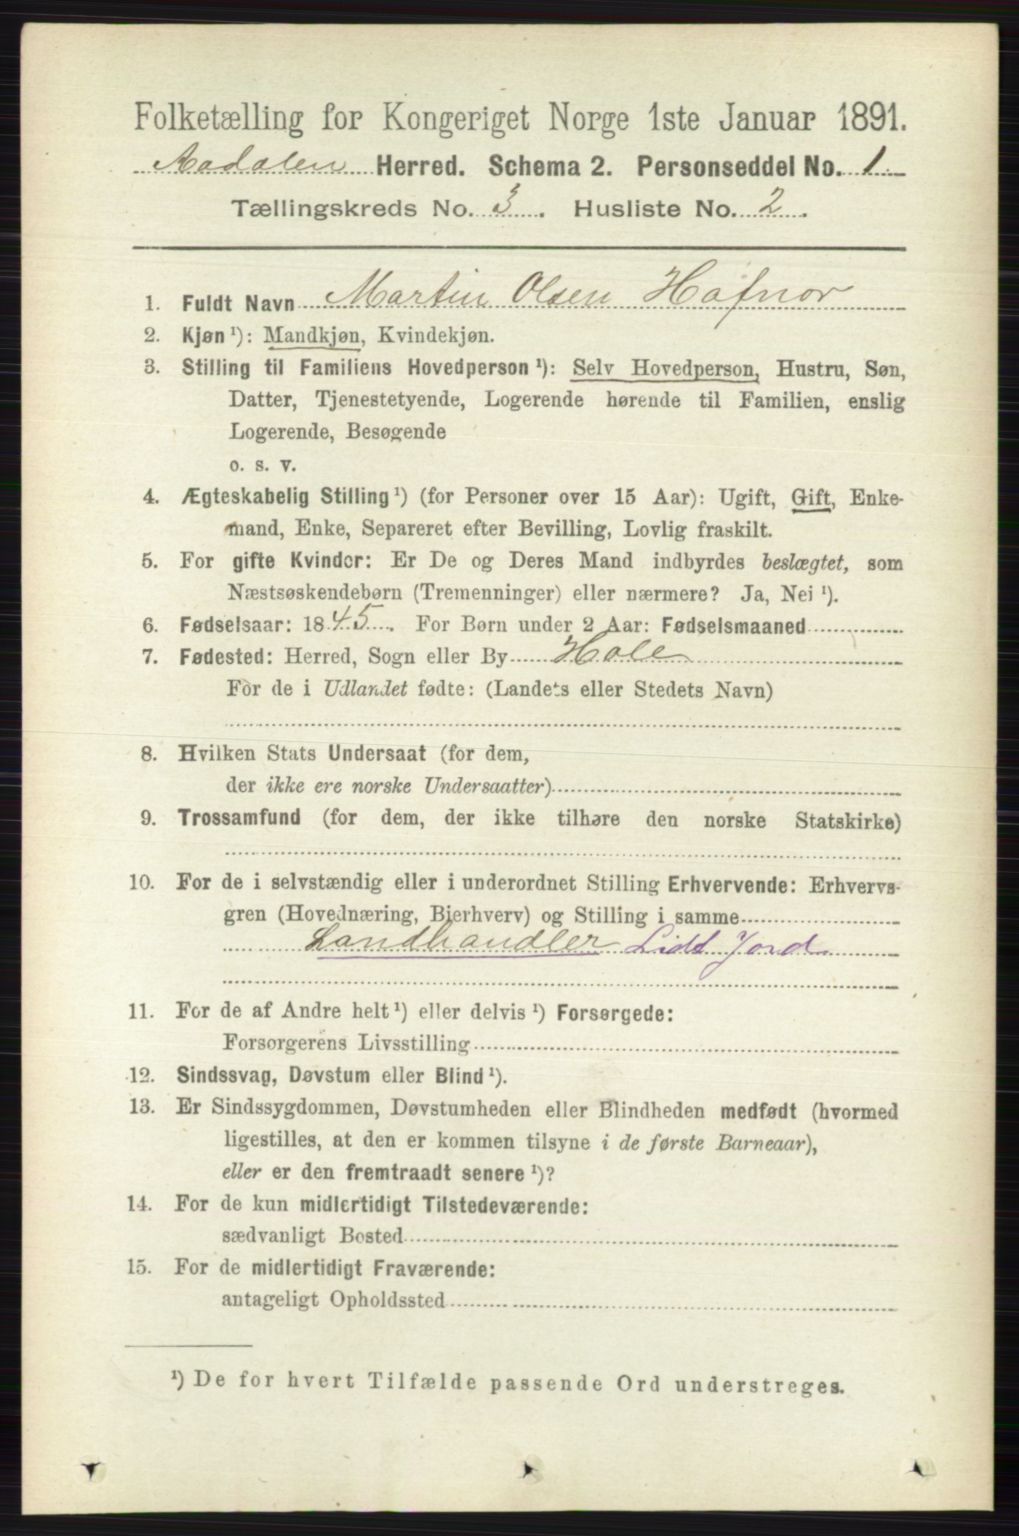 Folketælling for Kongeriget Norge 1ste Januar 1891.
Aadalen Herred. Schema 2. Personseddel No. 1
Tællingskreds No. 3. Husliste No. 2.
1. Fuldt Navn Martin Olsen Hafnor
2. Kjøn ¹): Mandkjøn, Kvindekjøn.
3. Stilling til Familiens Hovedperson ¹): Selv Hovedperson, Hustru, Søn,
Datter, Tjenestetyende, Logerende hørende til Familien, enslig
Logerende, Besøgende
o. s. v.
4. Ægteskabelig Stilling ¹) (for Personer over 15 Aar): Ugift, Gift, Enke-
mand, Enke, Separeret efter Bevilling, Lovlig fraskilt.
5. For gifte Kvinder: Er De og Deres Mand indbyrdes beslægtet, som
Næstsøskendebørn (Tremenninger) eller nærmere? Ja, Nei ¹).
6. Fødselsaar: 1845. For Børn under 2 Aar: Fødselsmaaned
7. Fødested: Herred, Sogn eller By Hole
For de i Udlandet fødte: (Landets eller Stedets Navn)
8. Hvilken Stats Undersaat (for dem,
der ikke ere norske Undersaatter)
9. Trossamfund (for dem, der ikke tilhøre den norske Statskirke)
10. For de i selvstændig eller i underordnet Stilling Erhvervende: Erhvervs-
gren (Hovednæring, Bierhverv) og Stilling i samme
Landhandler Lidt Jord
11. For de af Andre helt ¹) eller delvis ¹) Forsørgede:
Forsørgerens Livsstilling
12. Sindssvag, Døvstum eller Blind ¹).
13. Er Sindssygdommen, Døvstumheden eller Blindheden medfødt (hvormed
ligestilles, at den er kommen tilsyne i de første Barneaar),
eller er den fremtraadt senere ¹)?
14. For de kun midlertidigt Tilstedeværende:
sædvanligt Bosted
15. For de midlertidigt Fraværende:
antageligt Opholdssted
¹) De for hvert Tilfælde passende Ord understreges.